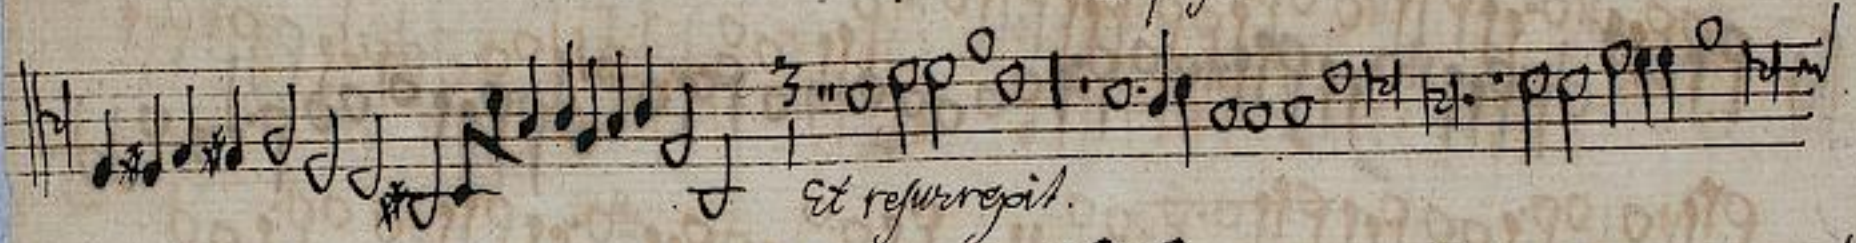 3
Et resurrexit.